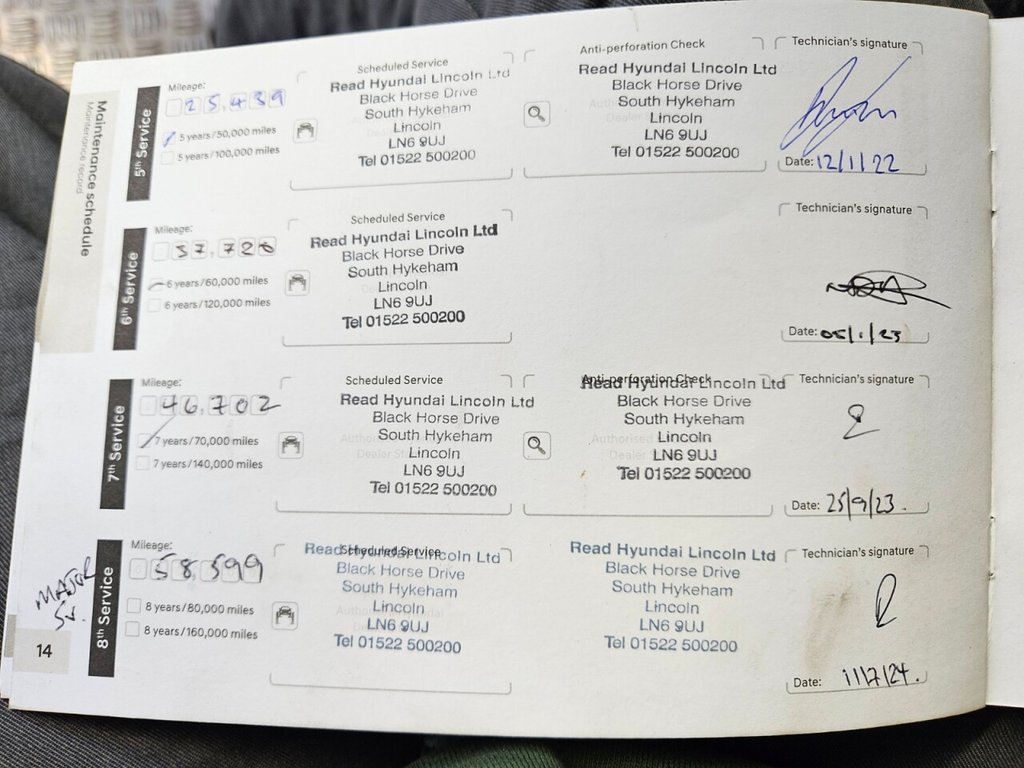 Maintenance schedule
Maintenance record
5th Service
Mileage:
25,439
5 years/50,000 miles
5 years/100,000 miles
Scheduled Service
Read Hyundai Lincoln Ltd
Black Horse Drive
South Hykeham
Lincoln
LN6 9UJ
Tel 01522 500200
Anti-perforation Check
Read Hyundai Lincoln Ltd
Black Horse Drive
South Hykeham
Lincoln
LN6 9UJ
Tel 01522 500200
Technician's signature
Date: 12/1/22
6th Service
Mileage:
37,728
6 years/60,000 miles
6 years/120,000 miles
Scheduled Service
Read Hyundai Lincoln Ltd
Black Horse Drive
South Hykeham
Lincoln
LN6 9UJ
Tel 01522 500200
Technician's signature
Date: 05/1/23
7th Service
Mileage:
46,702
7 years/70,000 miles
7 years/140,000 miles
Scheduled Service
Read Hyundai Lincoln Ltd
Black Horse Drive
South Hykeham
Lincoln
LN6 9UJ
Tel 01522 500200
Anti-perforation Check
Read Hyundai Lincoln Ltd
Black Horse Drive
South Hykeham
Authorised
Lincoln
Dealer
LN6 9UJ
Tel 01522 500200
Technician's signature
Date: 25/9/23.
MAJOR
Sv.
8th Service
Mileage:
58,599
8 years/80,000 miles
8 years/160,000 miles
Scheduled Service
Read Hyundai Lincoln Ltd
Black Horse Drive
South Hykeham
Lincoln
LN6 9UJ
Tel 01522 500200
Read Hyundai Lincoln Ltd
Black Horse Drive
South Hykeham
Lincoln
LN6 9UJ
Tel 01522 500200
Technician's signature
Date: 11/7/24.
14